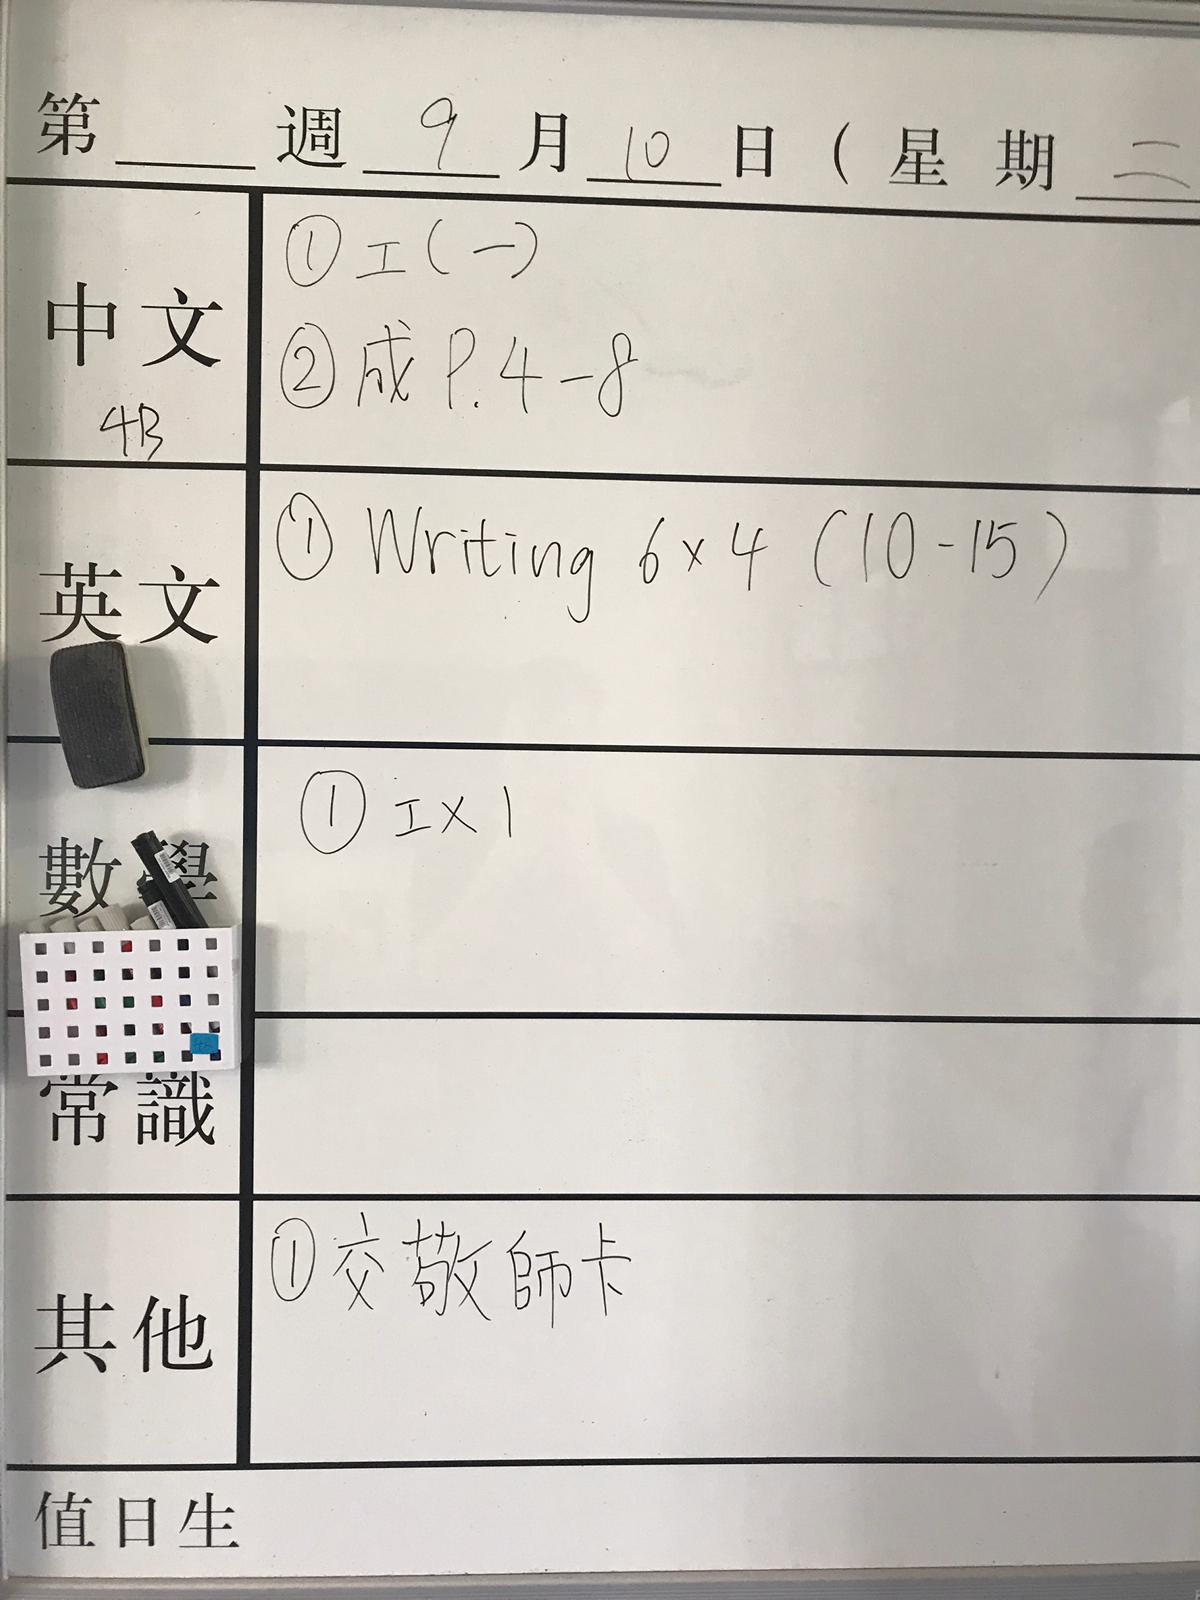 第 週 9 月 10 日 ( 星 期 二
中文
4B
① 工(一)
② 成 P.4-8
英文
① Writing 6×4 (10-15)
數學
① 工×1
常識
其他
① 交敬師卡
值日生